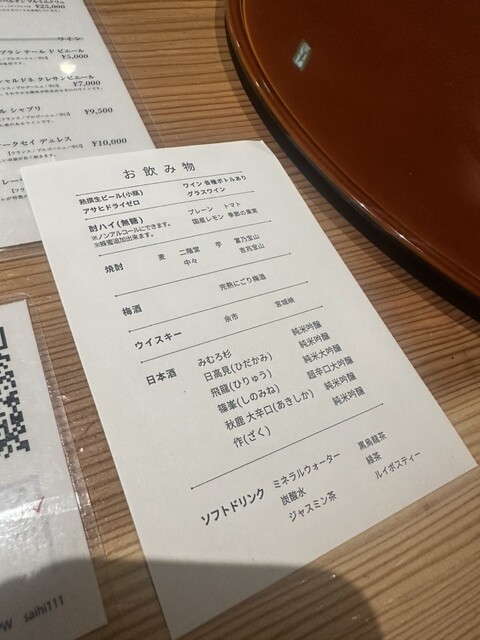 ¥25,000
ワイン
ブラン テール ド ピエール
¥5,000
シャルドネ クレサンピエール
¥7,000
ル シャブリ
¥9,500
¥10,000
お飲み物
熟撰生ビール(小瓶)
アサヒドライゼロ
ワイン 各種ボトルあり
グラスワイン
酎ハイ(無糖)
※ノンアルコールにできます。
※蜂蜜追加出来ます。
プレーン トマト
国産レモン 季節の果実
焼酎
麦 二階堂 芋 富乃宝山
中々 吉兆宝山
梅酒
完熟にごり梅酒
ウイスキー
余市 宮城峡
日本酒
みむろ杉 純米吟醸
日高見(ひだかみ) 純米吟醸
飛龍(ひりゅう) 純米大吟醸
篠峯(しのみね) 超辛口大吟醸
秋鹿 大辛口(あきしか) 純米吟醸
作(ざく) 純米吟醸
ソフトドリンク
ミネラルウォーター 黒烏龍茶
炭酸水 緑茶
ジャスミン茶 ルイボスティー
saihi111